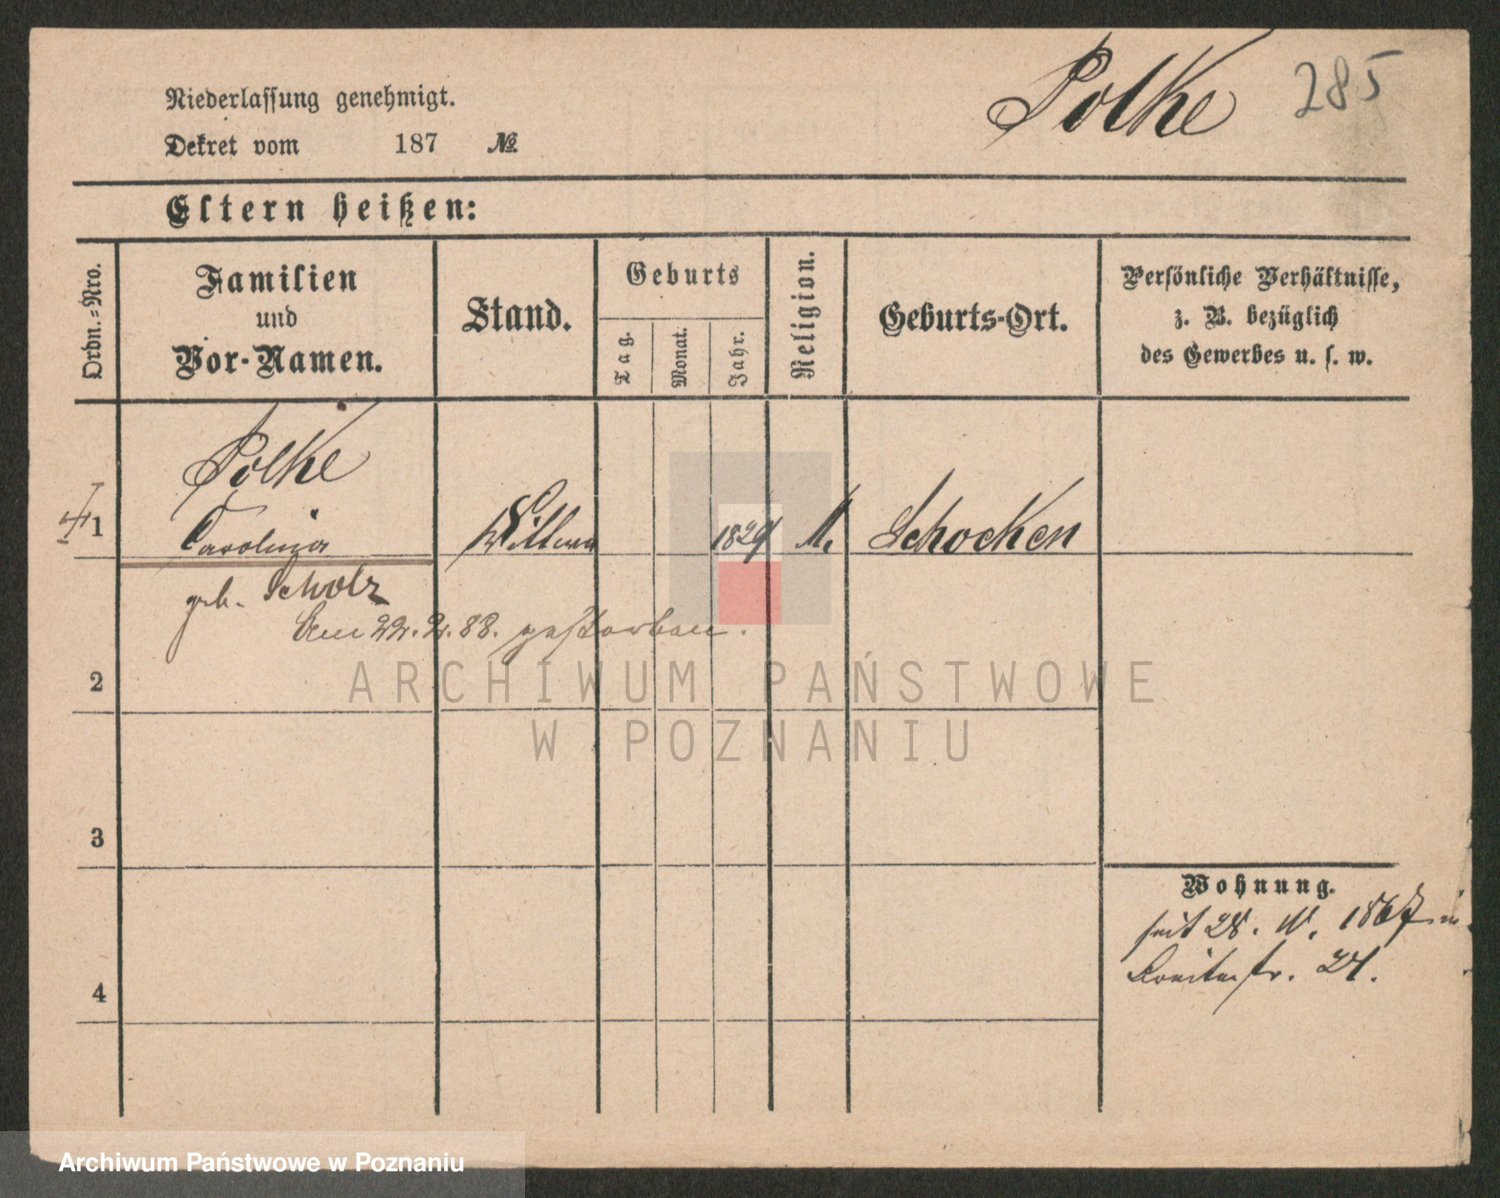 Niederlassung genehmigt.
Dekret vom 187 №
Polke 285
Eltern heißen:
Ordn.-Nro.
Familien
und
Vor-Namen.
Stand.
Geburts
Tag.
Monat.
Jahr.
Religion.
Geburts-Ort.
Persönliche Verhältnisse,
z. B. bezüglich
des Gewerbes u. s. w.
Polke
1 Carolina Wittwe 1829 Schocken
geb. Scholz
Am 22. 2. 88. gestorben.
2
3
4
Wohnung.
seit 28. 1867 in
24.
ARCHIWUM PAŃSTWOWE
W POZNANIU
Archiwum Państwowe w Poznaniu